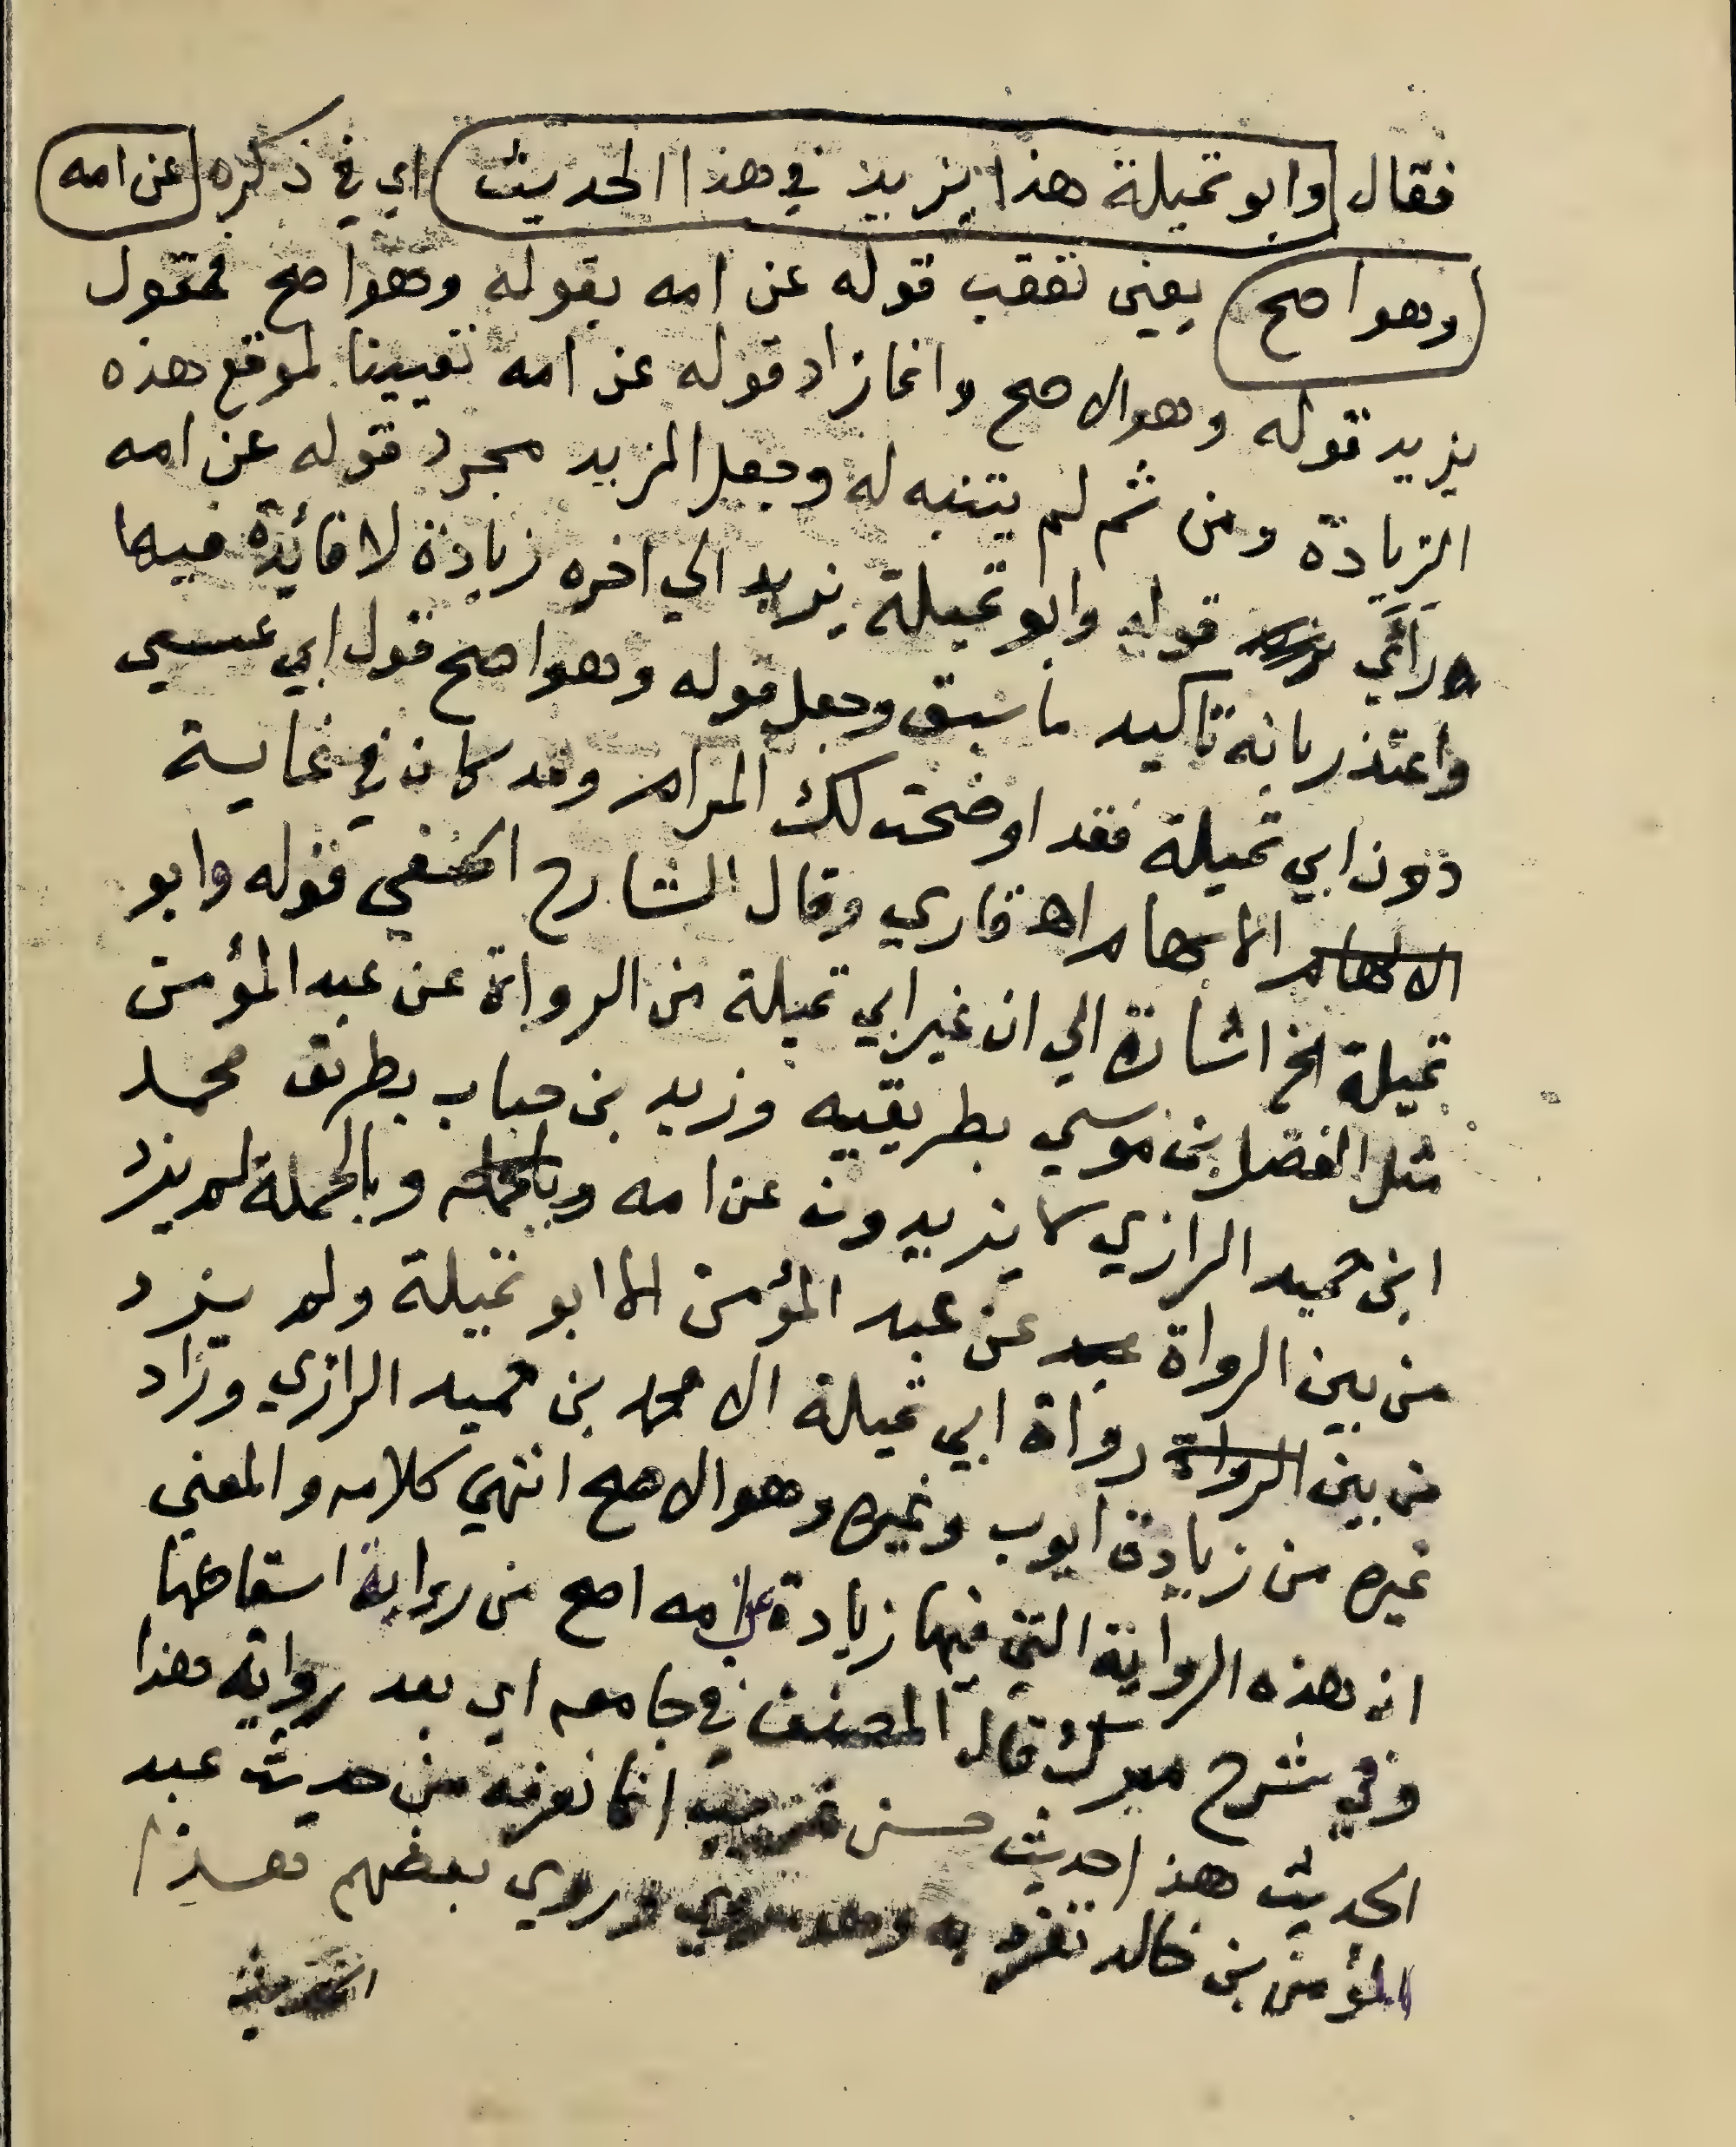 فقال وابو تميلة هذا يزيد في هذا الحديث اي في ذكره عن امه
وهو اصح يعني تعقب قوله عن امه بقوله وهو اصح فمقول
يزيد قوله وهو الاصح وانما زاد قوله عن امه تعيينا لموقع هذه
الزيادة ومن ثم لم يتنبه له وجعل المزيد مجرد قوله عن امه
رأي قوله وابو تميلة يزيد الي اخره زيادة لا فائدة فيها
واعتذر بانه تاكيد ما سبق وجعل قوله وهو اصح قول ابي عيسي
دون ابي تميلة فقد اوضحت لك المرام وقد كان في غاية
الابهام اه قاري وقال الشارح الحنفي قوله وابو
تميلة الخ اشارة الي ان غير ابي تميلة من الرواة عن عبد المؤمن
مثل الفضل بن موسي بطريقيه وزيد بن حباب بطريق محمد
ابن حميد الرازي لا يزيدون عن امه وبالجملة وبالجملة لم يزد
من بين الرواة عبد عن عبد المؤمن الا ابو تميلة ولم يزد
من بين الرواة رواة ابي تميلة الا محمد بن حميد الرازي وزاد
غيره من زيادة ايوب وغيره وهو الاصح انتهي كلامه والمعني
ان هذه الرواية التي فيها زيادة عن امه اصح من رواية اسقاطها
وفي شرح ميرك قال المصنف في جامعه اي بعد رواية هذا
الحديث هذا حديث حسن غريب انما نعرفه من حديث عبد
المؤمن بن خالد تفرد به وروي بعضهم هذا
الحديث